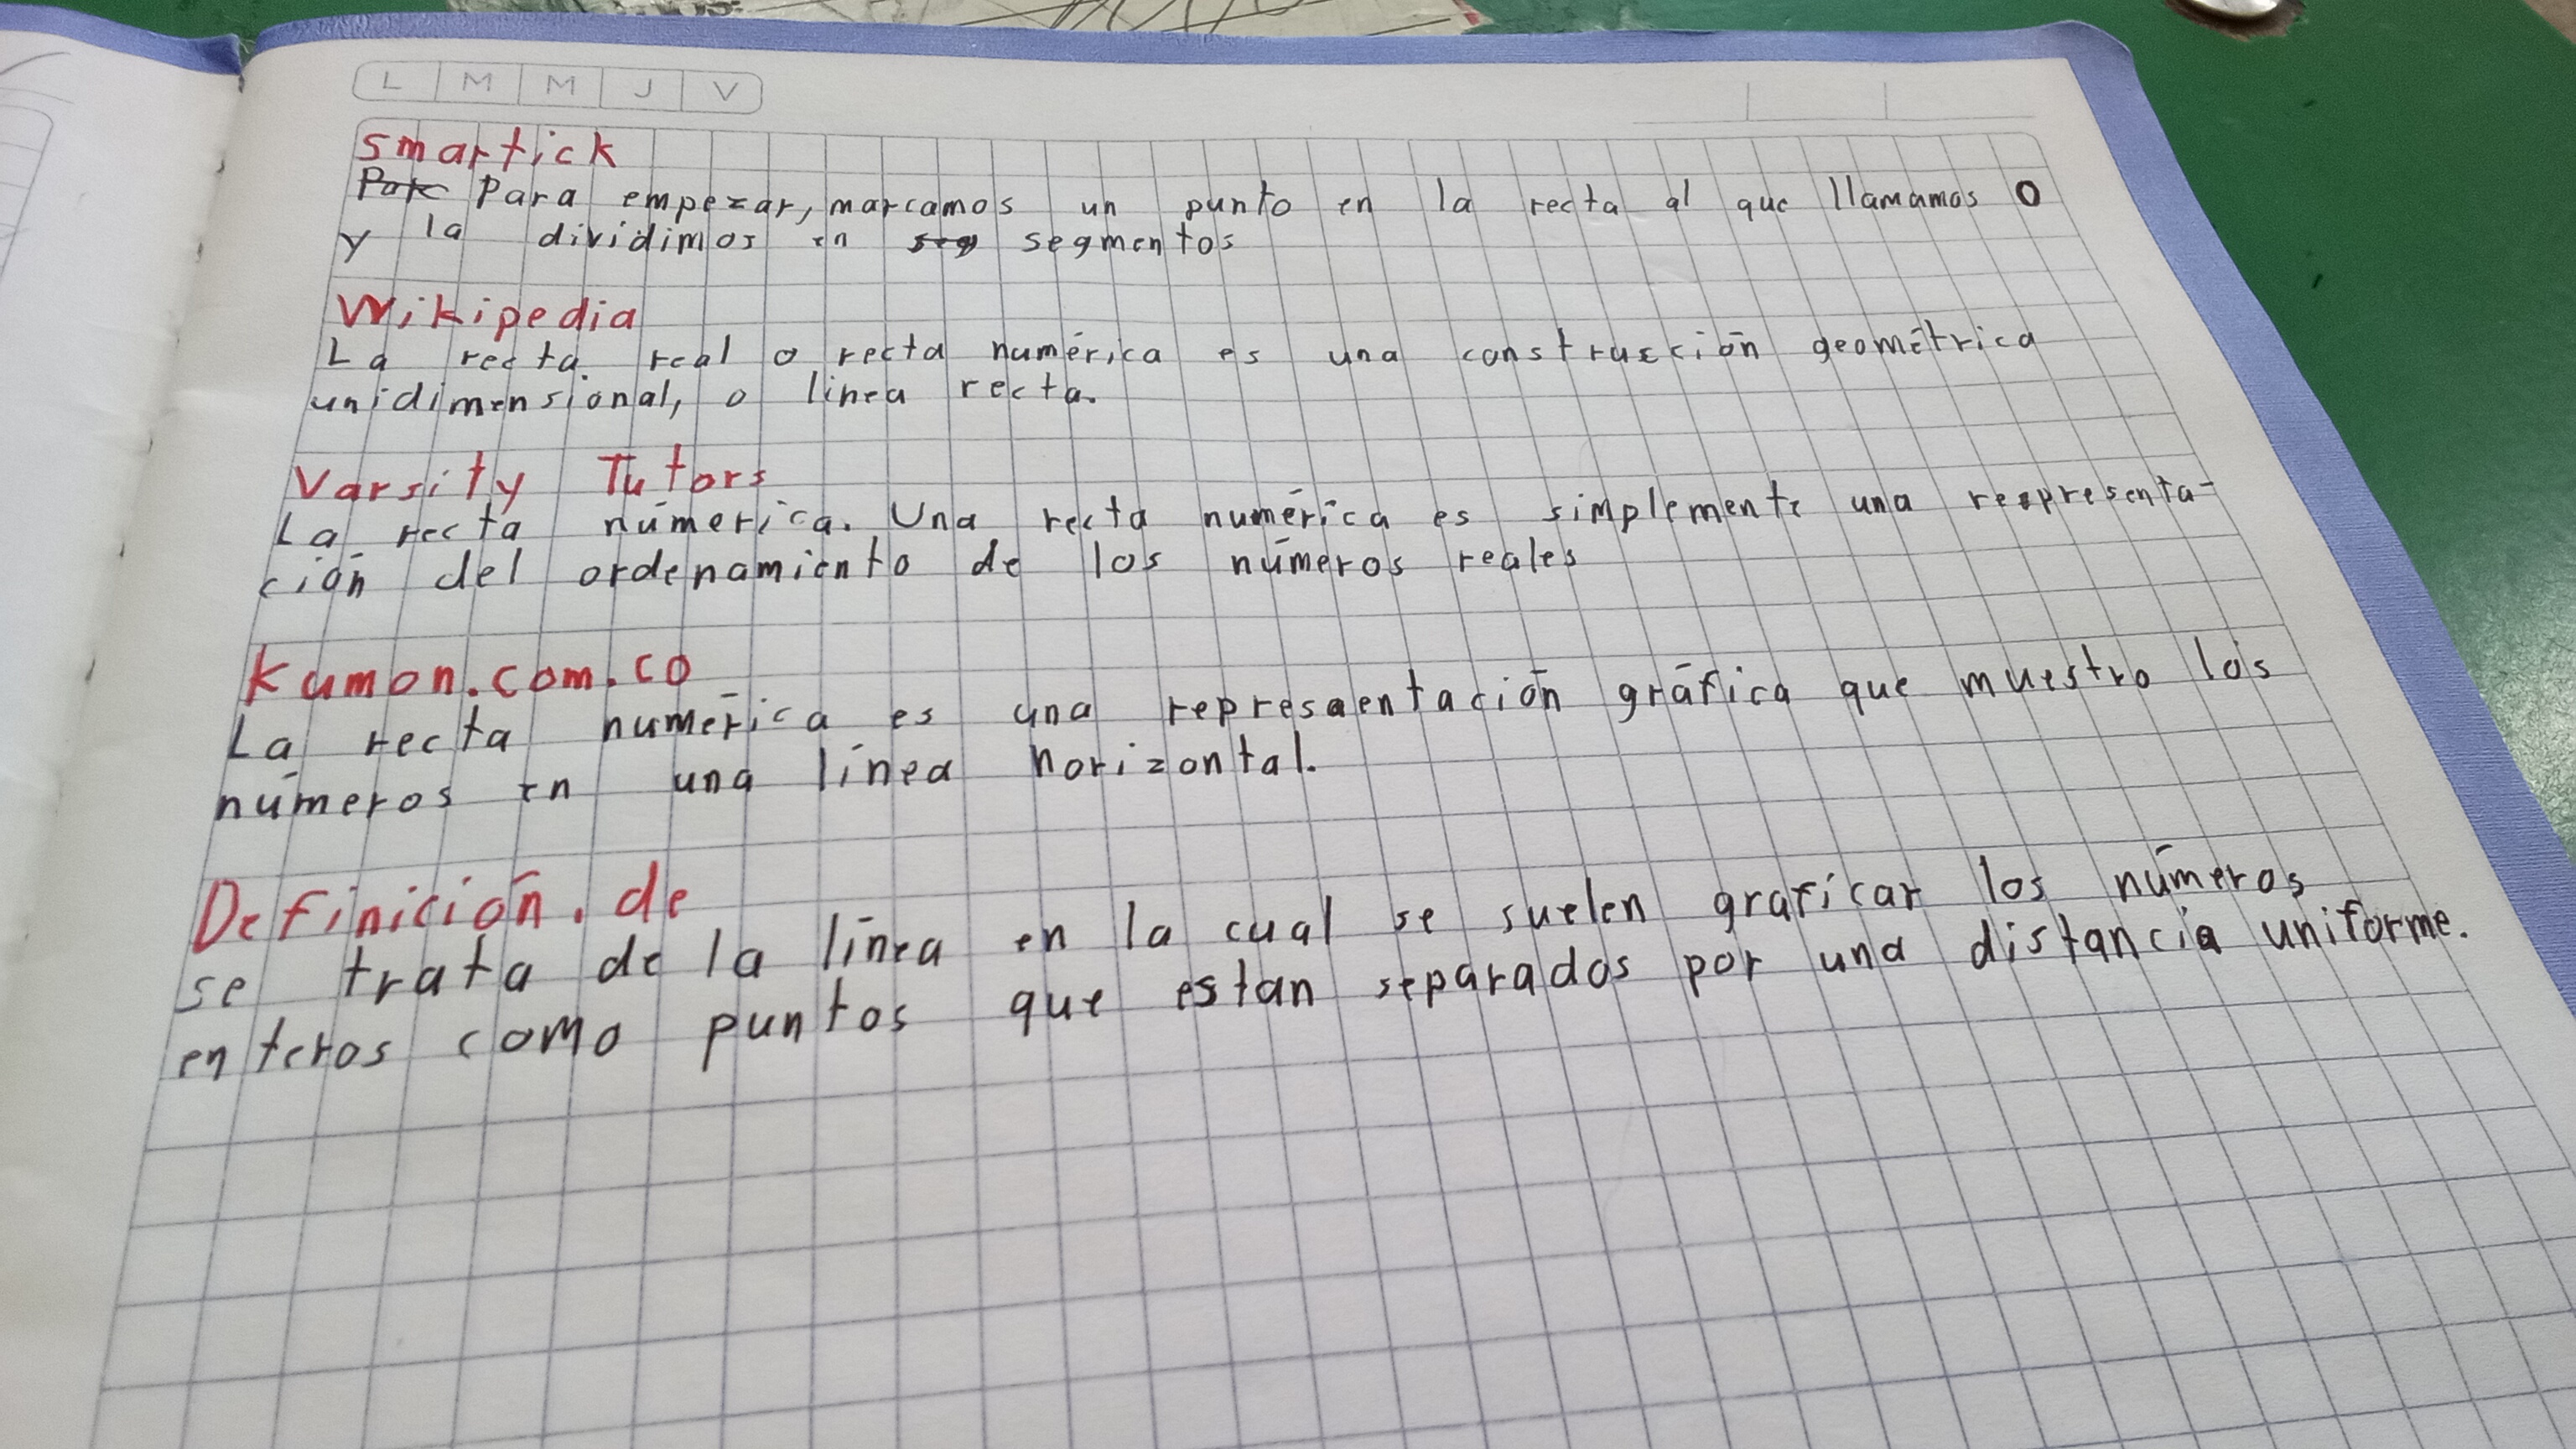 L M M J V
smartick
Para empezar, marcamos un punto en la recta al que llamamos 0
y la dividimos en seg segmentos
Wikipedia
La recta real o recta numérica es una construcción geométrica
unidimensional, o linea recta.
Varsity Tutors
La recta númerica. Una recta numérica es simplemente una representa-
ción del ordenamiento de los números reales
Kumon.com.co
La recta numérica es una represaentación gráfica que muestro los
números en una línea horizontal.
Definición.de
se trata de la línea en la cual se suelen graficar los números
enteros como puntos que estan separados por una distancia uniforme.